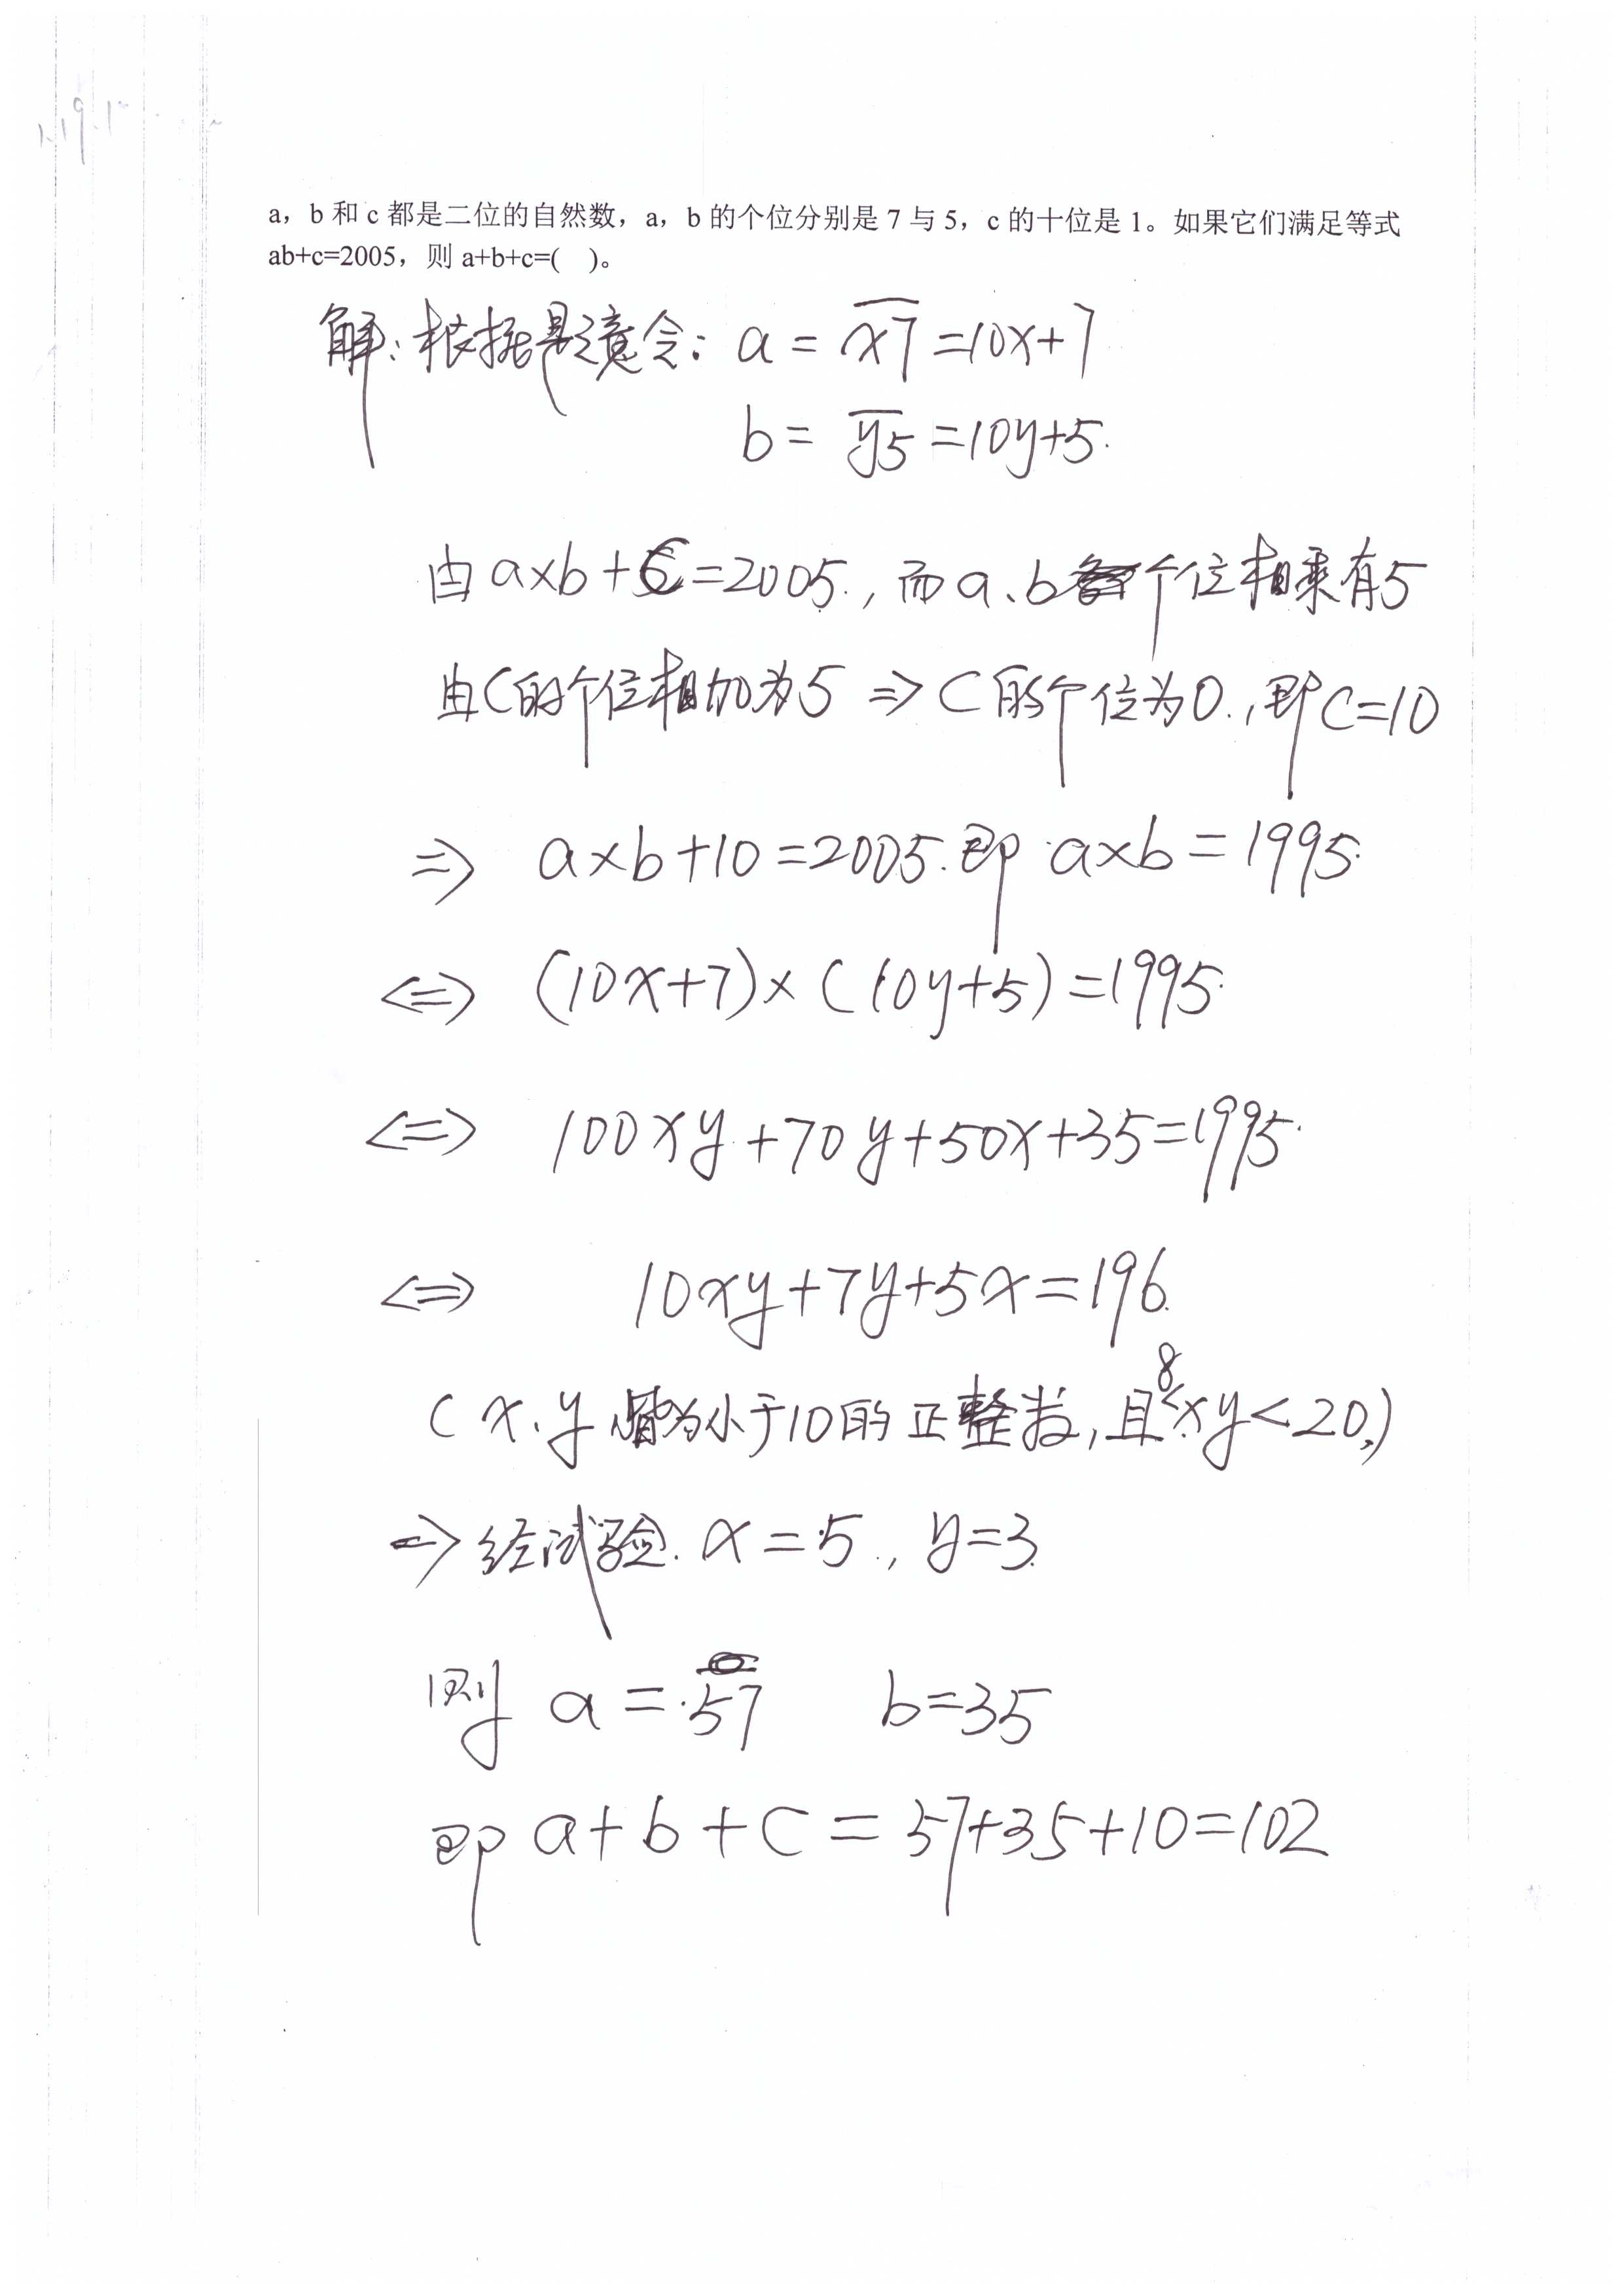 a，b 和 c 都是二位的自然数，a，b 的个位分别是 7 与 5，c 的十位是 1。如果它们满足等式
ab+c=2005，则 a+b+c=( )。
解：根据题意令：a = x7 = 10x+7
b = y5 = 10y+5.
由 a×b+c=2005.，而 a、b 个位相乘有5
由C的个位相加为5 => C的个位为0.，即C=10
=> a×b+10=2005.即 a×b=1995.
<=> (10x+7)×(10y+5)=1995.
<=> 100xy+70y+50x+35=1995.
<=> 10xy+7y+5x=196.
(x.y 皆为小于10的正整数，且8<xy<20.)
=> 经试验. x=5., y=3.
则 a=57 b=35
即 a+b+c=57+35+10=102